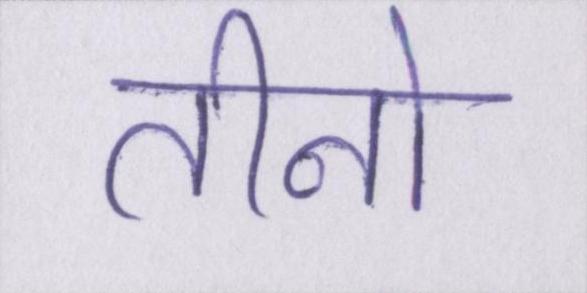 तीनो